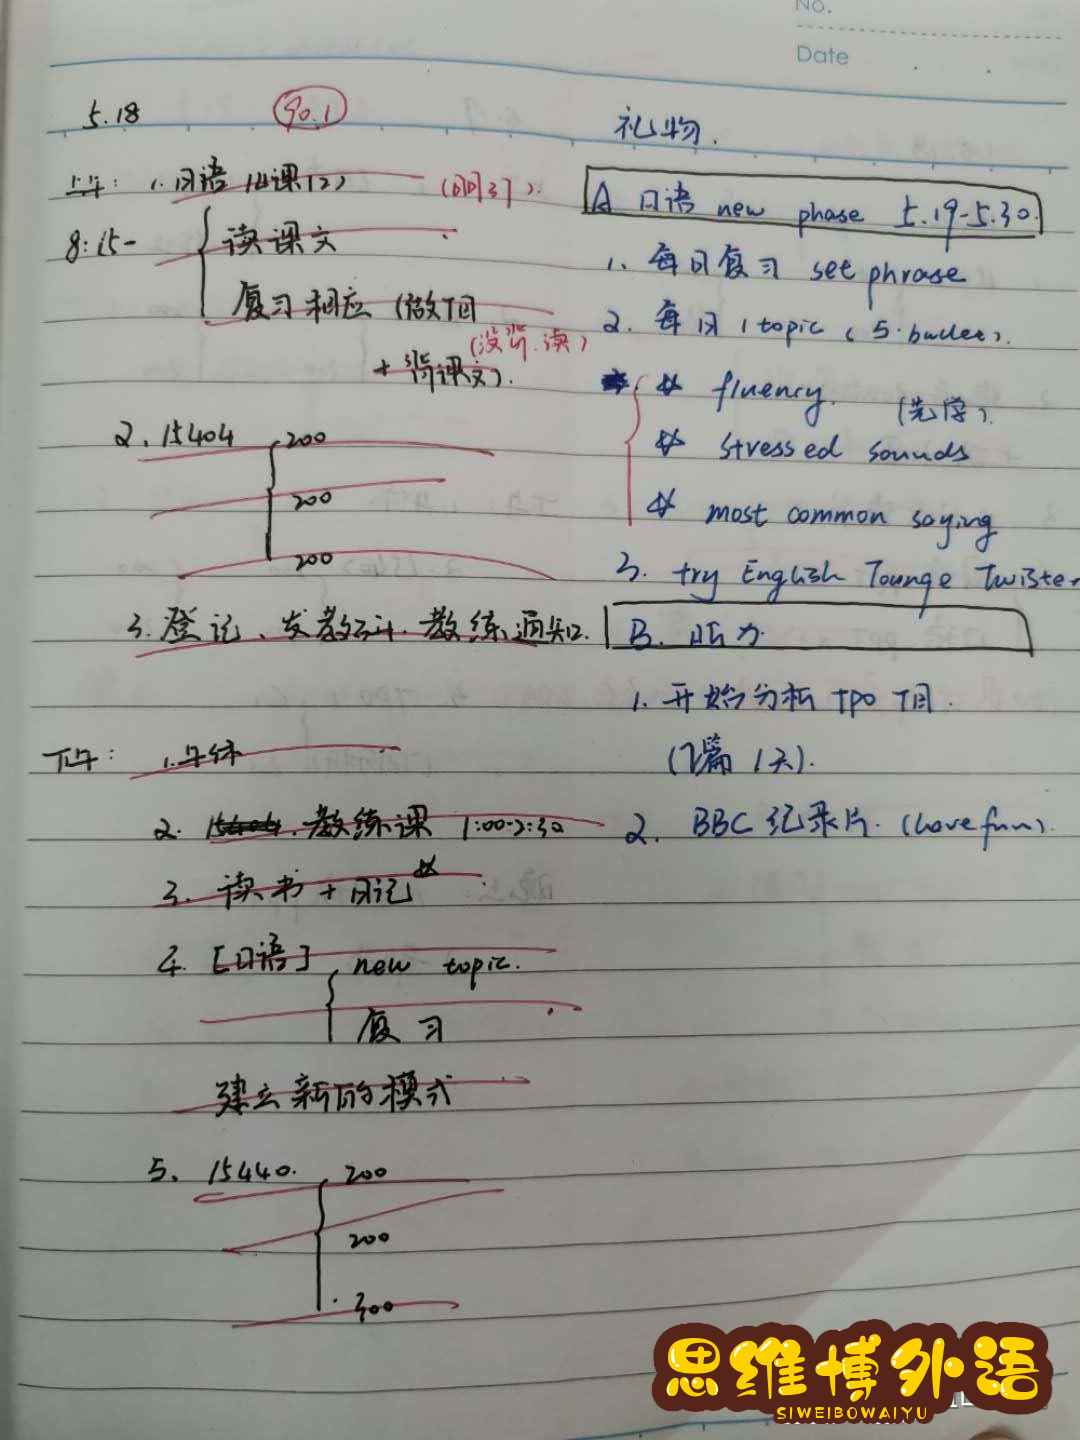 No.
Date
5.18 90.1
上午: 1. 日语
8:15- 读课文
复习相应 (做T目
(没背.读)
+ 背课文).
2. 15404 200
200
200
3. 登记、发教练通知.
下午: 1. 午休
2. 教练课 1:00-2:30
3. 读书 + 日记
4. [日语] new topic.
复习
建立新的模式
5. 15440. 200
200
300
礼物.
A 日语 new phase 5.19-5.30.
1. 每日复习 set phrase
2. 每日 1 topic (5. bullet).
fluency. (先学).
stressed sounds
most common saying
3. try English Tounge Twister
B. 听力
1. 开始分析 TPO T目.
(2篇 1天).
2. BBC 纪录片. (Love fun).
思维博外语
SIWEIBOWAIYU